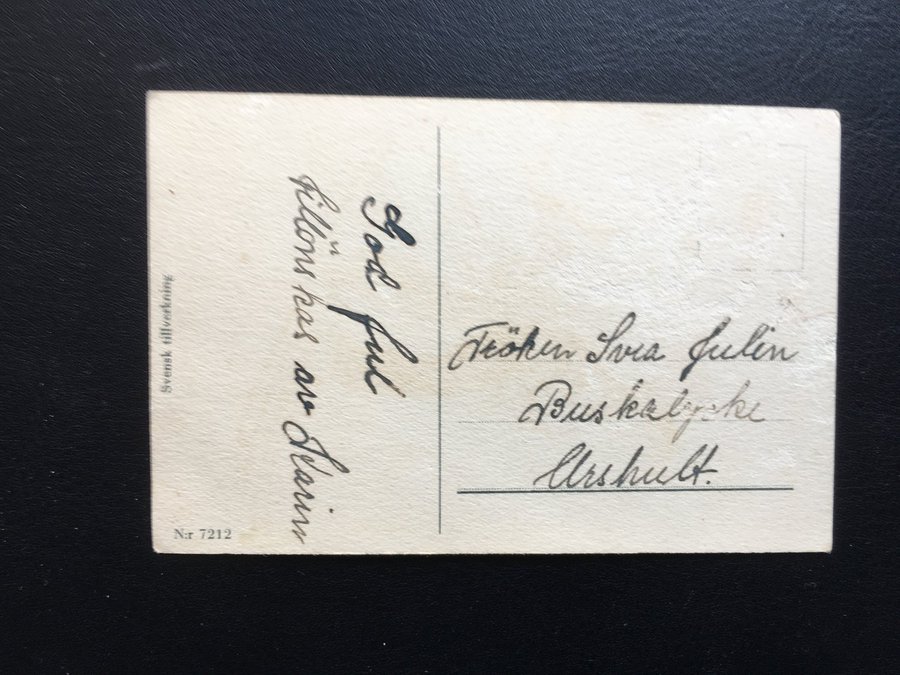 God jul
tillönskas av Karin
Fröken Svea Julin
Buskalycke
Urshult.
Svensk tillverkning
N:r 7212